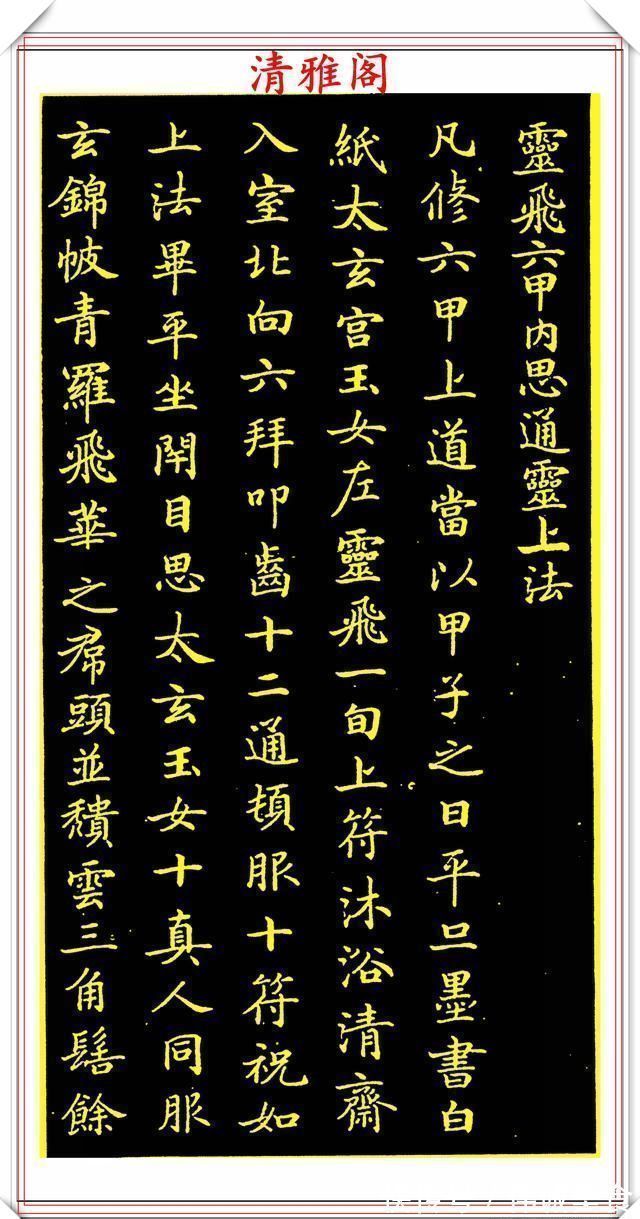 清雅阁
靈飛六甲内思通靈上法
凡修六甲上道當以甲子之日平旦墨書白
紙太玄宫玉女左靈飛一旬上符沐浴清齋
入室北向六拜叩齒十二通頓服十符祝如
上法畢平坐閇目思太玄玉女十真人同服
玄錦帔青羅飛華之帬頭並穨雲三角髻餘